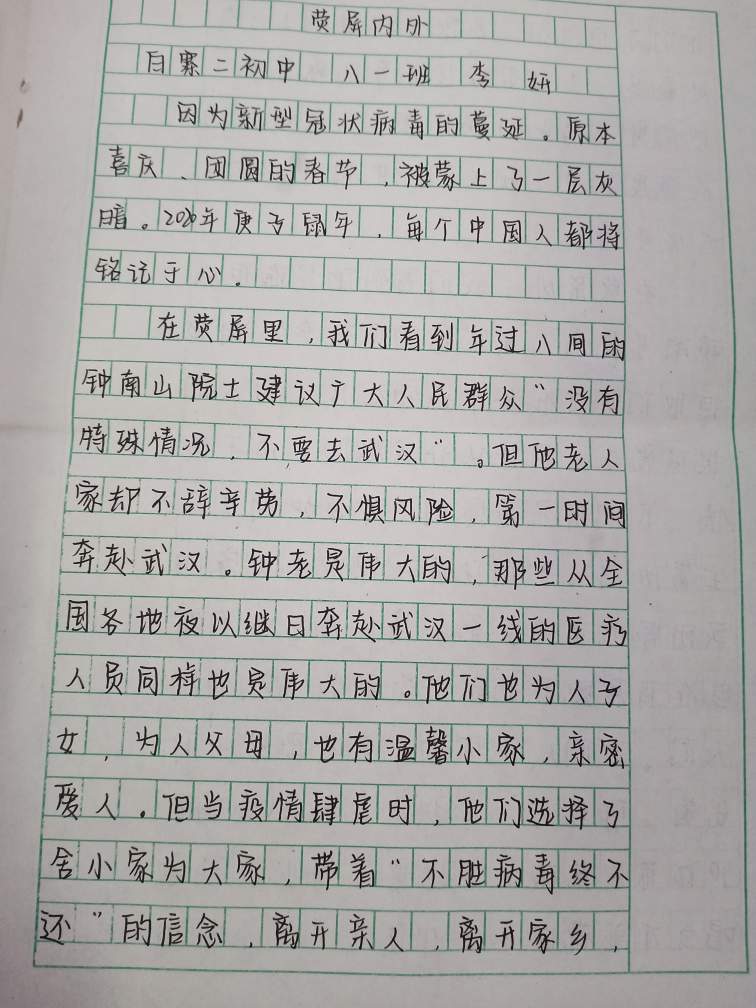 荧屏内外
白寨二初中 八一班 李妍
因为新型冠状病毒的蔓延。原本
喜庆、团圆的春节，被蒙上了一层灰
暗。2020年庚子鼠年，每个中国人都将
铭记于心.
在荧屏里，我们看到年过八间的
钟南山院士建议广大人民群众“没有
特殊情况，不要去武汉”。但他老人
家却不辞辛劳，不惧风险，第一时间
奔赴武汉。钟老是伟大的，那些从全
国各地夜以继日奔赴武汉一线的医疗
人员同样也是伟大的。他们也为人子
女，为人父母，也有温馨小家，亲密
爱人。但当疫情肆虐时，他们选择了
舍小家为大家，带着“不胜病毒终不
还”的信念，离开亲人，离开家乡，